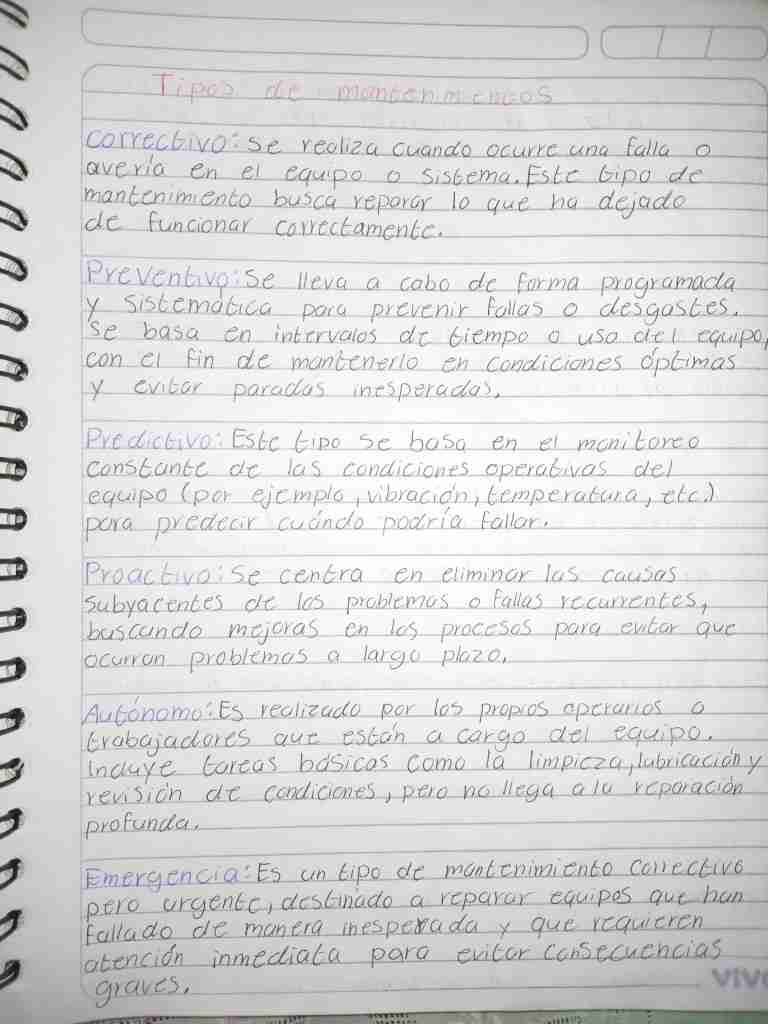 Tipos de mantenimientos
Correctivo: Se realiza cuando ocurre una falla o
avería en el equipo o sistema. Este tipo de
mantenimiento busca reparar lo que ha dejado
de funcionar correctamente.
Preventivo: Se lleva a cabo de forma programada
y sistemática para prevenir fallas o desgastes.
Se basa en intervalos de tiempo o uso del equipo,
con el fin de mantenerlo en condiciones óptimas
y evitar paradas inesperadas.
Predictivo: Este tipo se basa en el monitoreo
constante de las condiciones operativas del
equipo (por ejemplo, vibración, temperatura, etc.)
para predecir cuándo podría fallar.
Proactivo: Se centra en eliminar las causas
subyacentes de los problemas o fallas recurrentes,
buscando mejoras en los procesos para evitar que
ocurran problemas a largo plazo.
Autónomo: Es realizado por los propios operarios o
trabajadores que están a cargo del equipo.
Incluye tareas básicas como la limpieza, lubricación y
revisión de condiciones, pero no llega a la reparación
profunda.
Emergencia: Es un tipo de mantenimiento correctivo
pero urgente, destinado a reparar equipos que han
fallado de manera inesperada y que requieren
atención inmediata para evitar consecuencias
graves.